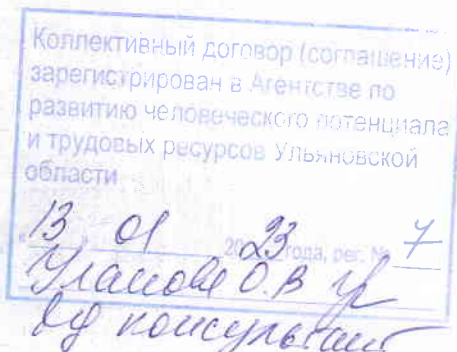 Коллективный договор (соглашение)
зарегистрирован в Агентстве по
развитию человеческого потенциала
и трудовых ресурсов Ульяновской
области
« 13 » 01 2023 года, рег. № 7
О.В
консультант